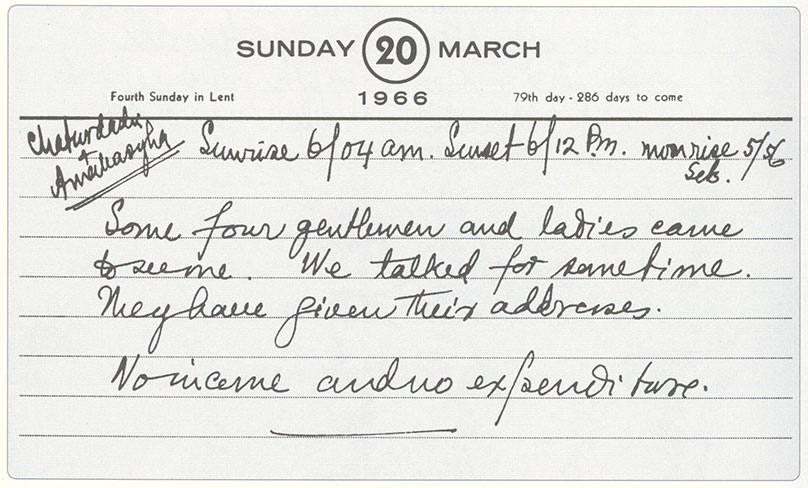 SUNDAY 20 MARCH
Fourth Sunday in Lent 1966 79th day - 286 days to come
Chaturdadsi
+
Amabasya
Sunrise 6/04 am. Sunset 6/12 P.m. monrise 5/56
Sets.
Some four gentlemen and ladies came
to see me. We talked for sometime.
They have given their addresses.
No income and no expenditure.